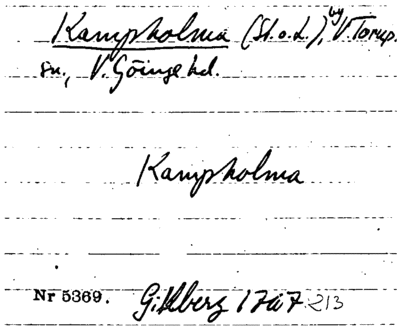 Kampholma (St. o. L.), by, V. Torup.
sn., V. Göinge hd.
Kampholma
Nr 5369. Gillberg 1767 213